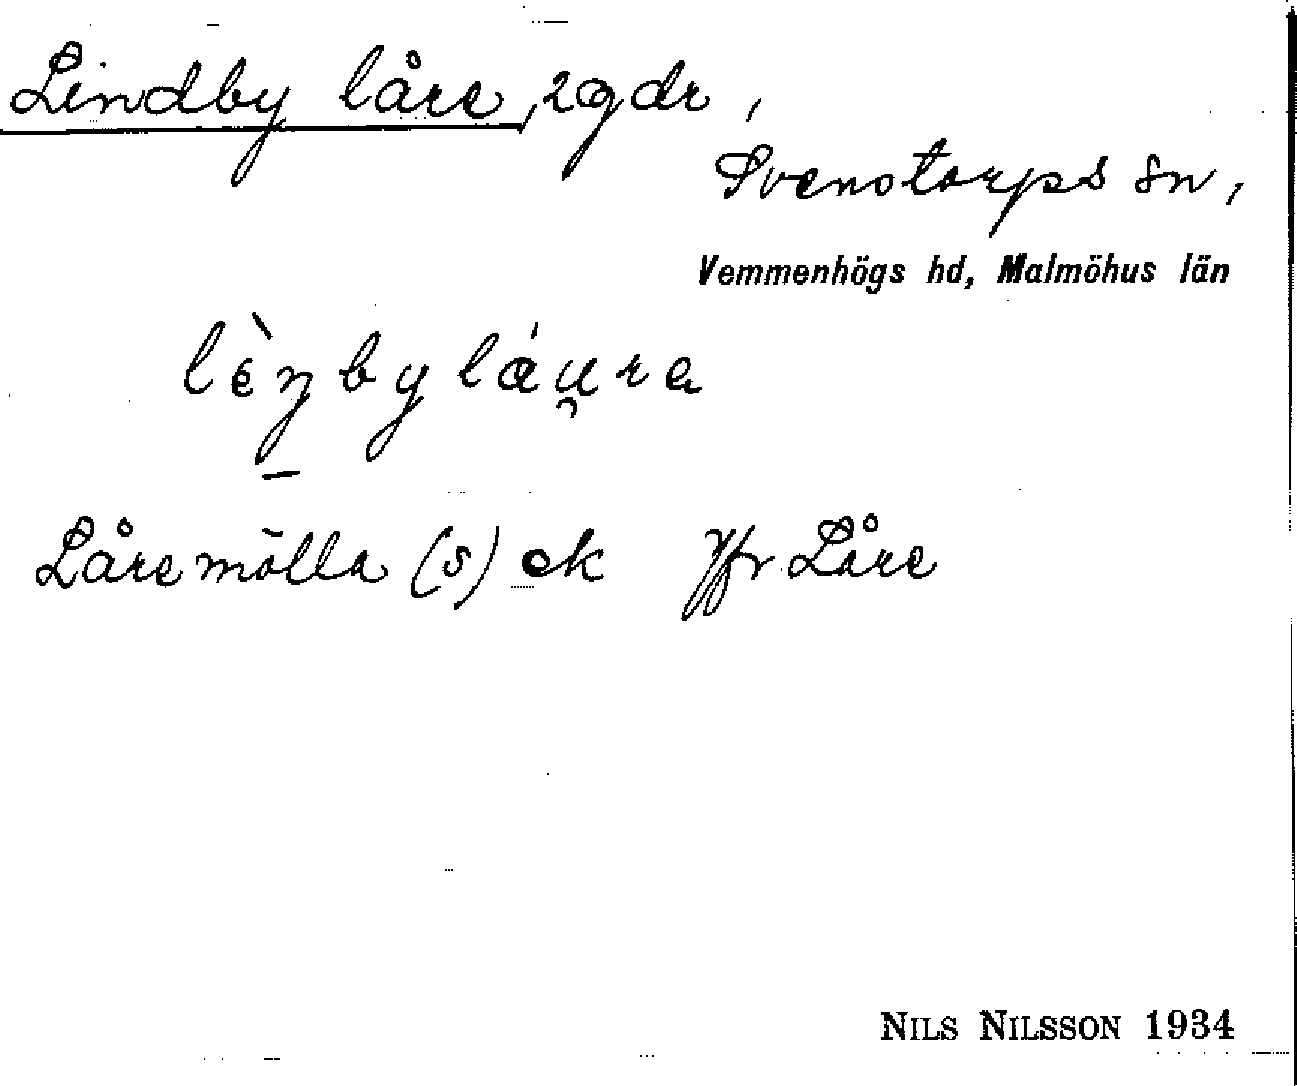 Lindby låre, 2 gdr,
Svenstorps sn,
Vemmenhögs hd, Malmöhus län
lèŋbyláu̯ra
Låremölla (s) ek Jfr Låre
NILS NILSSON 1934